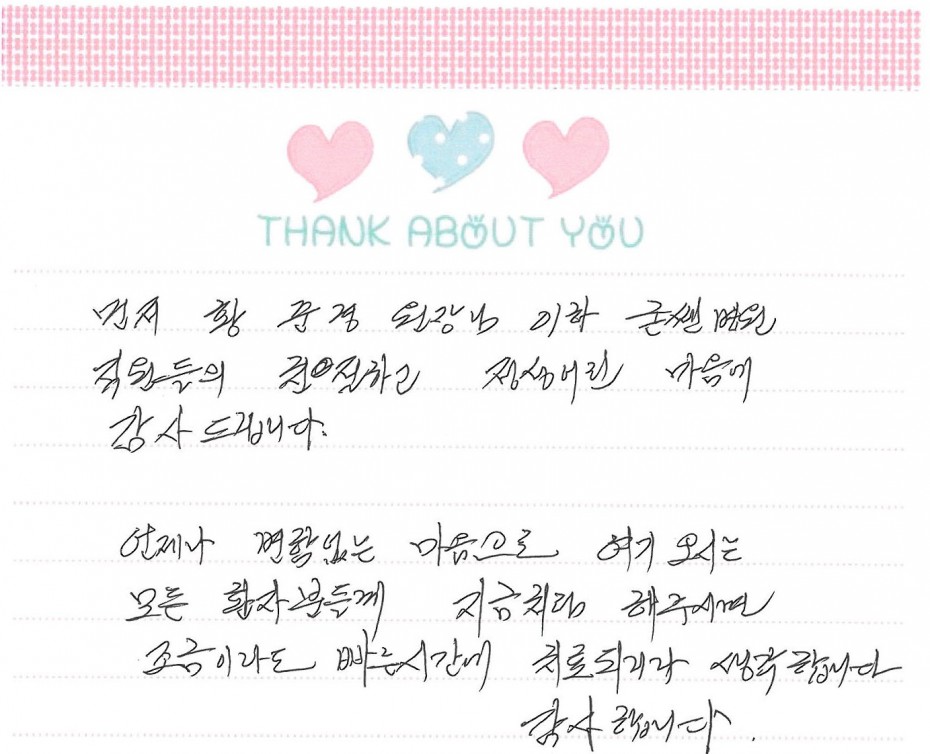 THANK ABOUT YOU
먼저 황 문경 원장님 이하 굳쎈병원
직원들의 진실하고 정성어린 마음에
감사드립니다.
언제나 변함없는 마음으로 여기 오시는
모든 환자분들께 지금처럼 해주시면
조금이라도 빠른시간에 치료되리라 생각합니다
감사합니다.